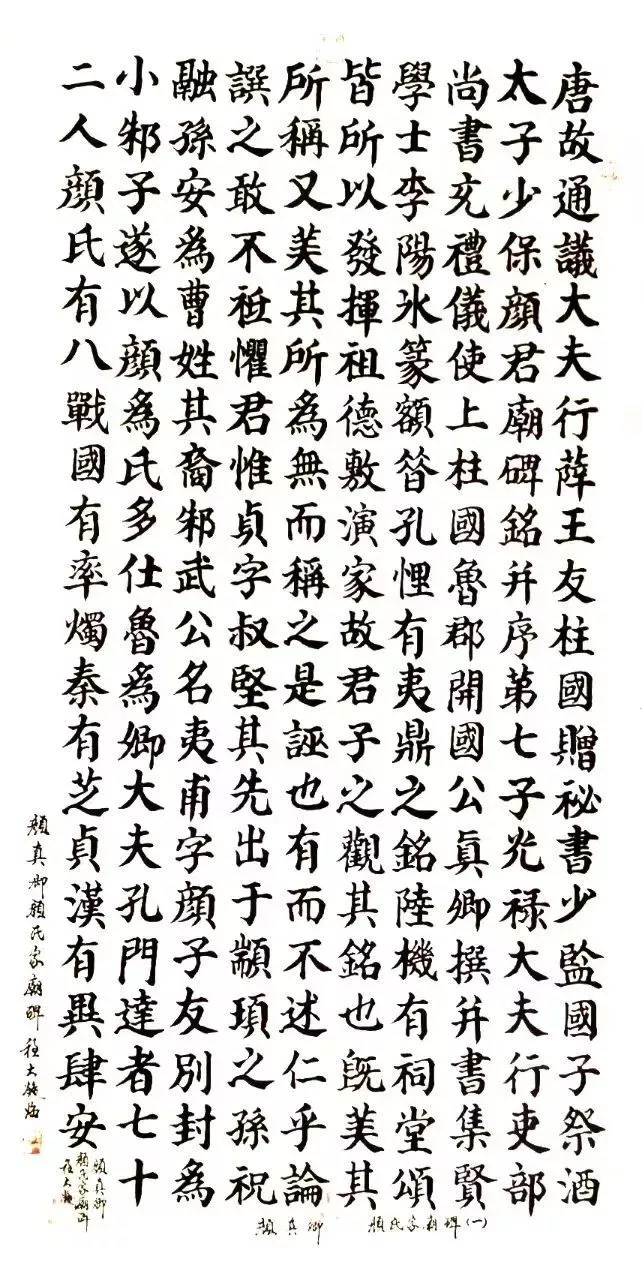 唐故通議大夫行薛王友柱國贈祕書少監國子祭酒
太子少保顏君廟碑銘并序第七子光祿大夫行吏部
尚書充禮儀使上柱國魯郡開國公真卿撰并書集賢
學士李陽冰篆額昝孔悝有夷鼎之銘陸機有祠堂頌
皆所以發揮祖德敷演家故君子之觀其銘也既美其
所稱又美其所為無而稱之是誣也有而不述仁乎論
譔之敢不祗懼君惟貞字叔堅其先出于顓頊之孫祝
融孫安為曹姓其裔邾武公名夷甫字顏子友別封為
小邾子遂以顏為氏多仕魯為卿大夫孔門達者七十
二人顏氏有八戰國有率燭秦有芝貞漢有異肆安
顏真卿顏氏家廟碑 程大銑臨
顏真卿
顏氏家廟碑
顏真卿
顏氏家廟碑(一)